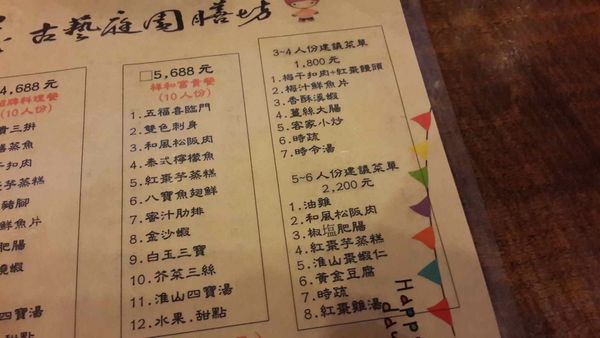 古藝庭園膳坊
4,688 元
招牌料理餐
(10人份)
鮮魚片
肥腸
四寶湯
甜點
□5,688 元
祥和富貴餐
(10人份)
1.五福喜臨門
2.雙色刺身
3.和風松阪肉
4.泰式檸檬魚
5.紅棗芋蒸糕
6.八寶魚翅鮮
7.蜜汁肋排
8.金沙蝦
9.白玉三寶
10.芥菜三絲
11.淮山四寶湯
12.水果.甜點
3~4人份建議菜單
1,800元
1.梅干扣肉+紅棗饅頭
2.梅汁鮮魚片
3.香酥溪蝦
4.薑絲大腸
5.客家小炒
6.時蔬
7.時令湯
5~6人份建議菜單
2,200元
1.油雞
2.和風松阪肉
3.椒塩肥腸
4.紅棗芋蒸糕
5.淮山棗蝦仁
6.黃金豆腐
7.時蔬
8.紅棗雞湯